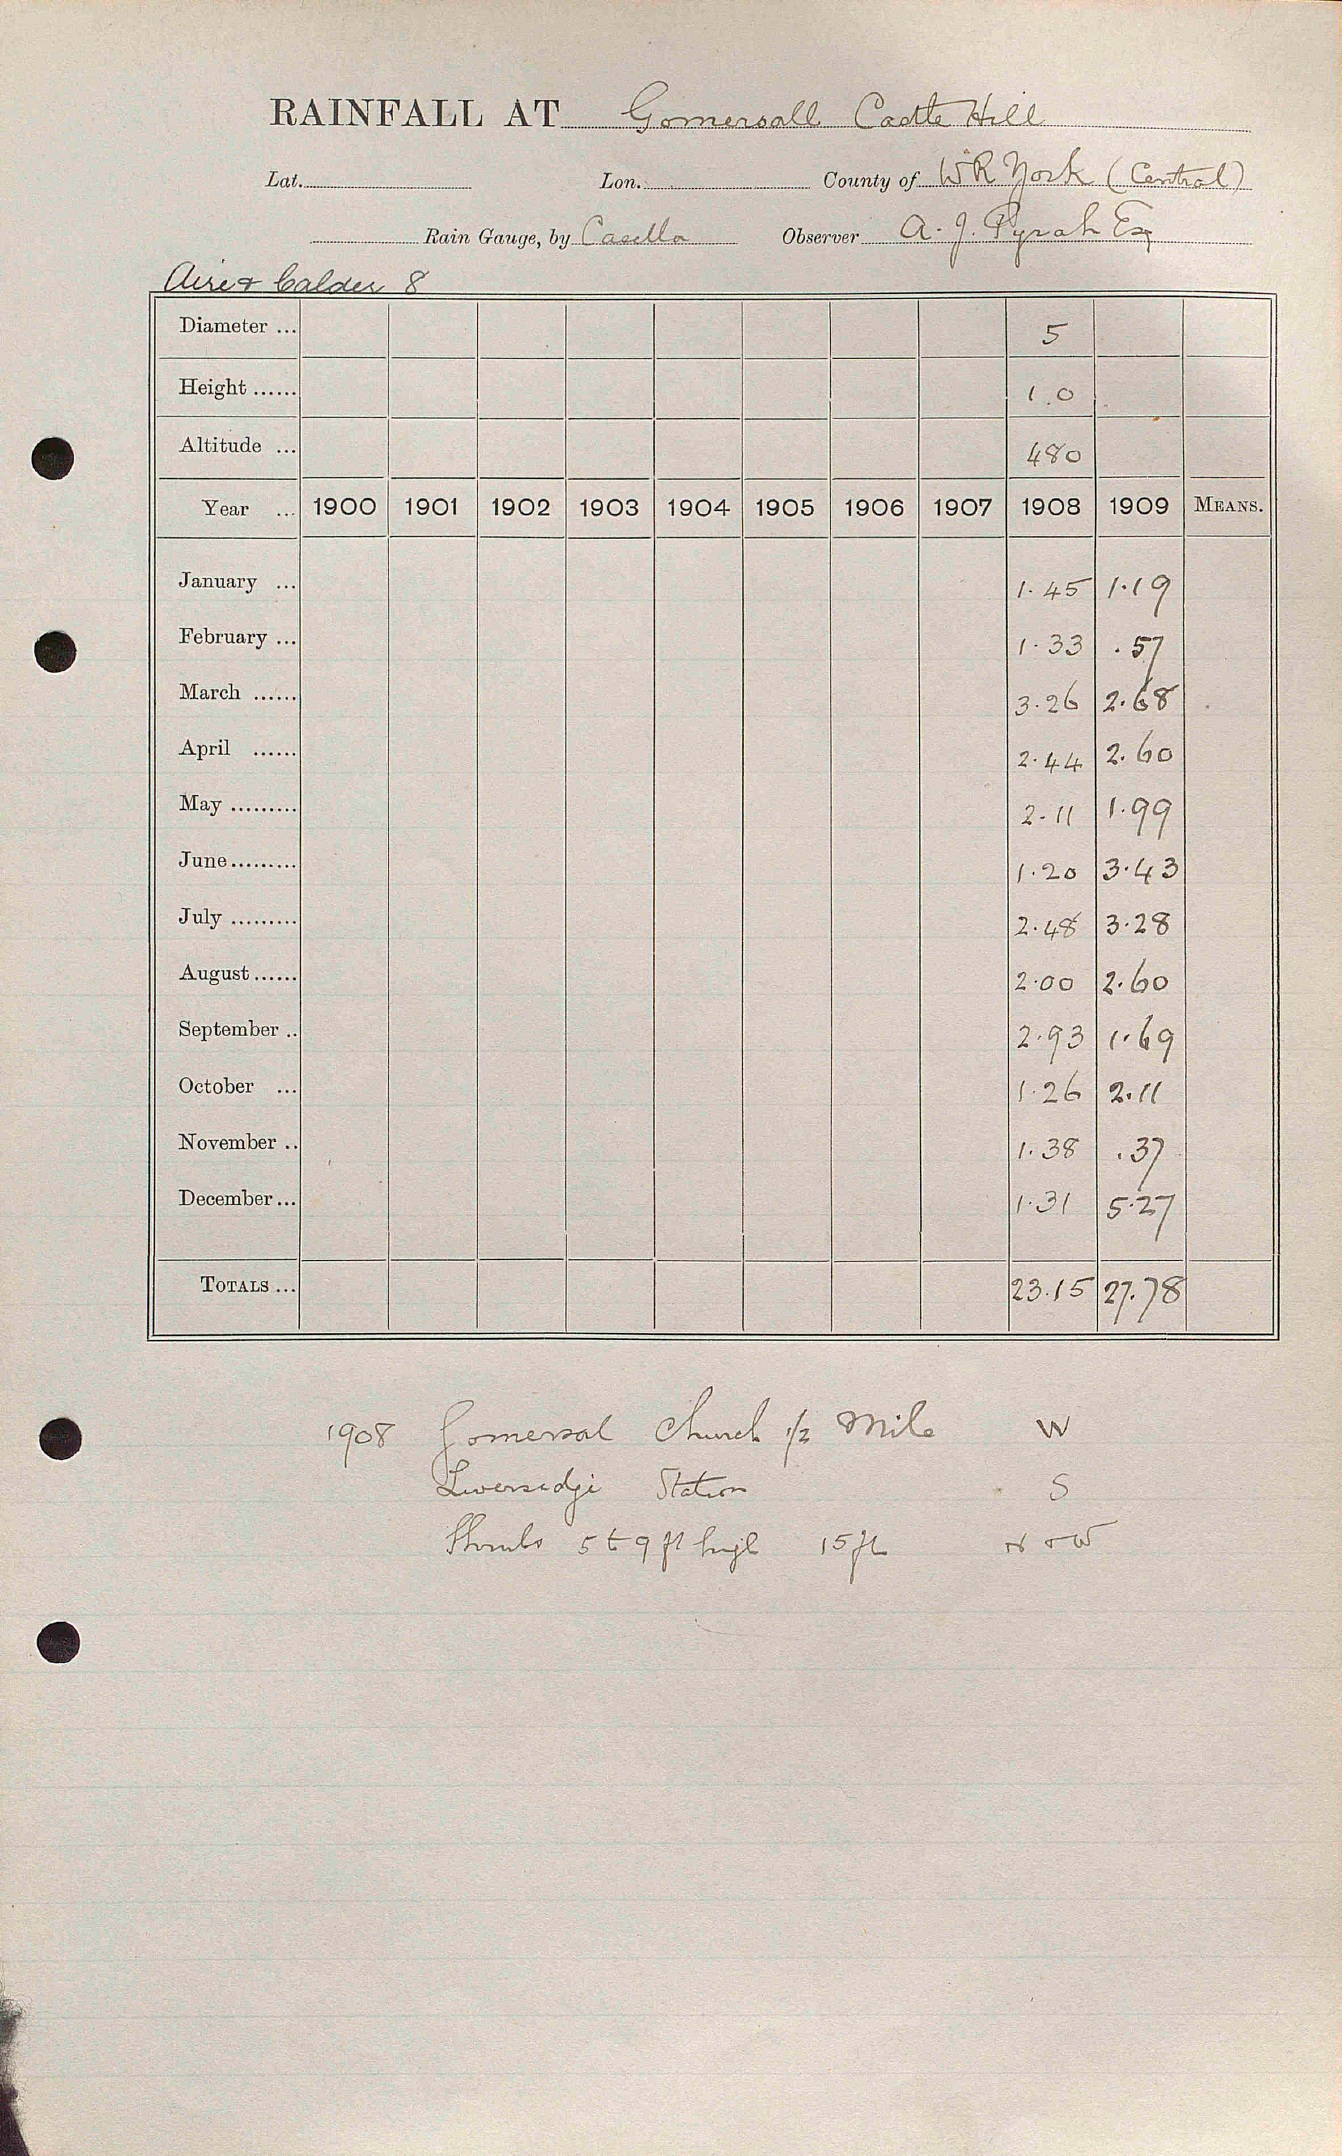 RAINFALL AT Gomersall Castle Hill
Lat. Lon. County of W R York (Central)
Rain Gauge, by Casella Observer A. J. Pyrah Esq
Aire & Calder 8
Diameter ... 5
Height ...... 1.0
Altitude ... 480
Year ... 1900 1901 1902 1903 1904 1905 1906 1907 1908 1909 MEANS.
January ... 1.45 1.19
February ... 1.33 .57
March ...... 3.26 2.68
April ...... 2.44 2.60
May ......... 2.11 1.99
June ......... 1.20 3.43
July ......... 2.48 3.28
August ...... 2.00 2.60
September .. 2.93 1.69
October ... 1.26 2.11
November .. 1.38 .37
December ... 1.31 5.27
TOTALS ... 23.15 27.78
1908 Gomersal Church 1/2 Mile W
Liversedge Station S
Shrubs 5 to 9 ft high 15 ft N & W